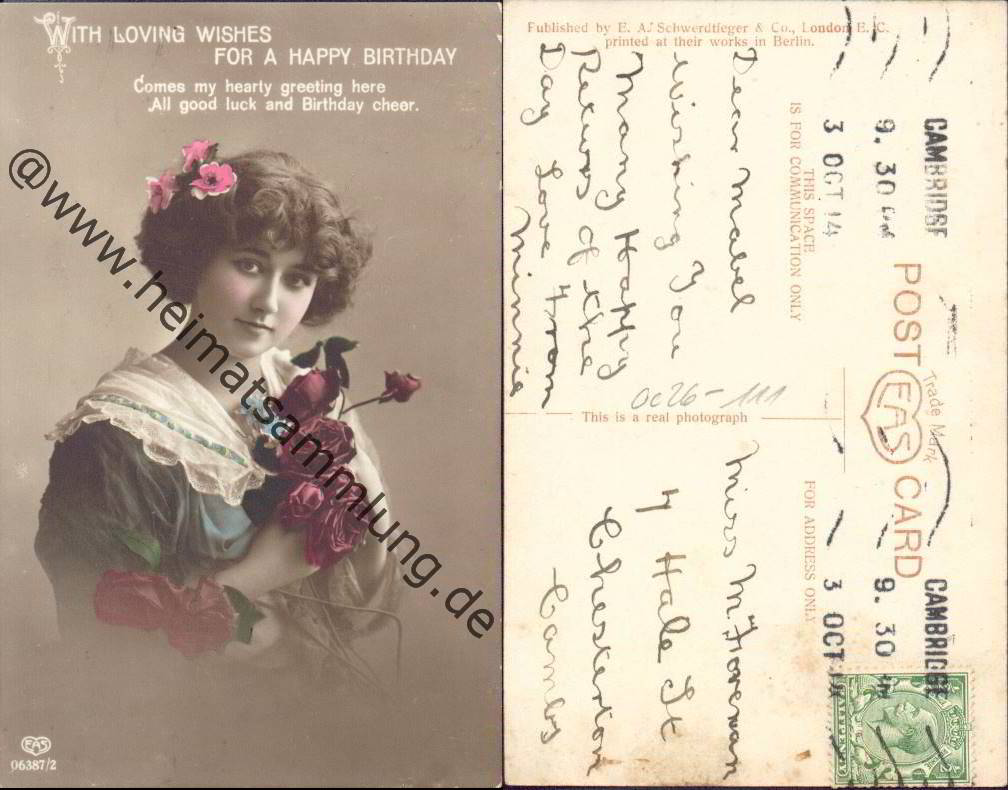 WITH LOVING WISHES
FOR A HAPPY BIRTHDAY
Comes my hearty greeting here
All good luck and Birthday cheer.
@www.heimatsammlung.de
EAS
06387/2
Published by E. A. Schwerdtfeger & Co., London E. C.
printed at their works in Berlin.
CAMBRIDGE
9.30
3 OCT 14
POST EAS CARD
Trade Mark
THIS SPACE
IS FOR COMMUNICATION ONLY
Dear Mabel
Wishing You
Many Happy
Returns of the
Day Love From
Minnie
0c26-111
This is a real photograph
FOR ADDRESS ONLY
CAMBRIDGE
9.30
3 OCT 14
Miss M. Foreman
4 Hale St
Chesterton
Cambs
HALFPENNY